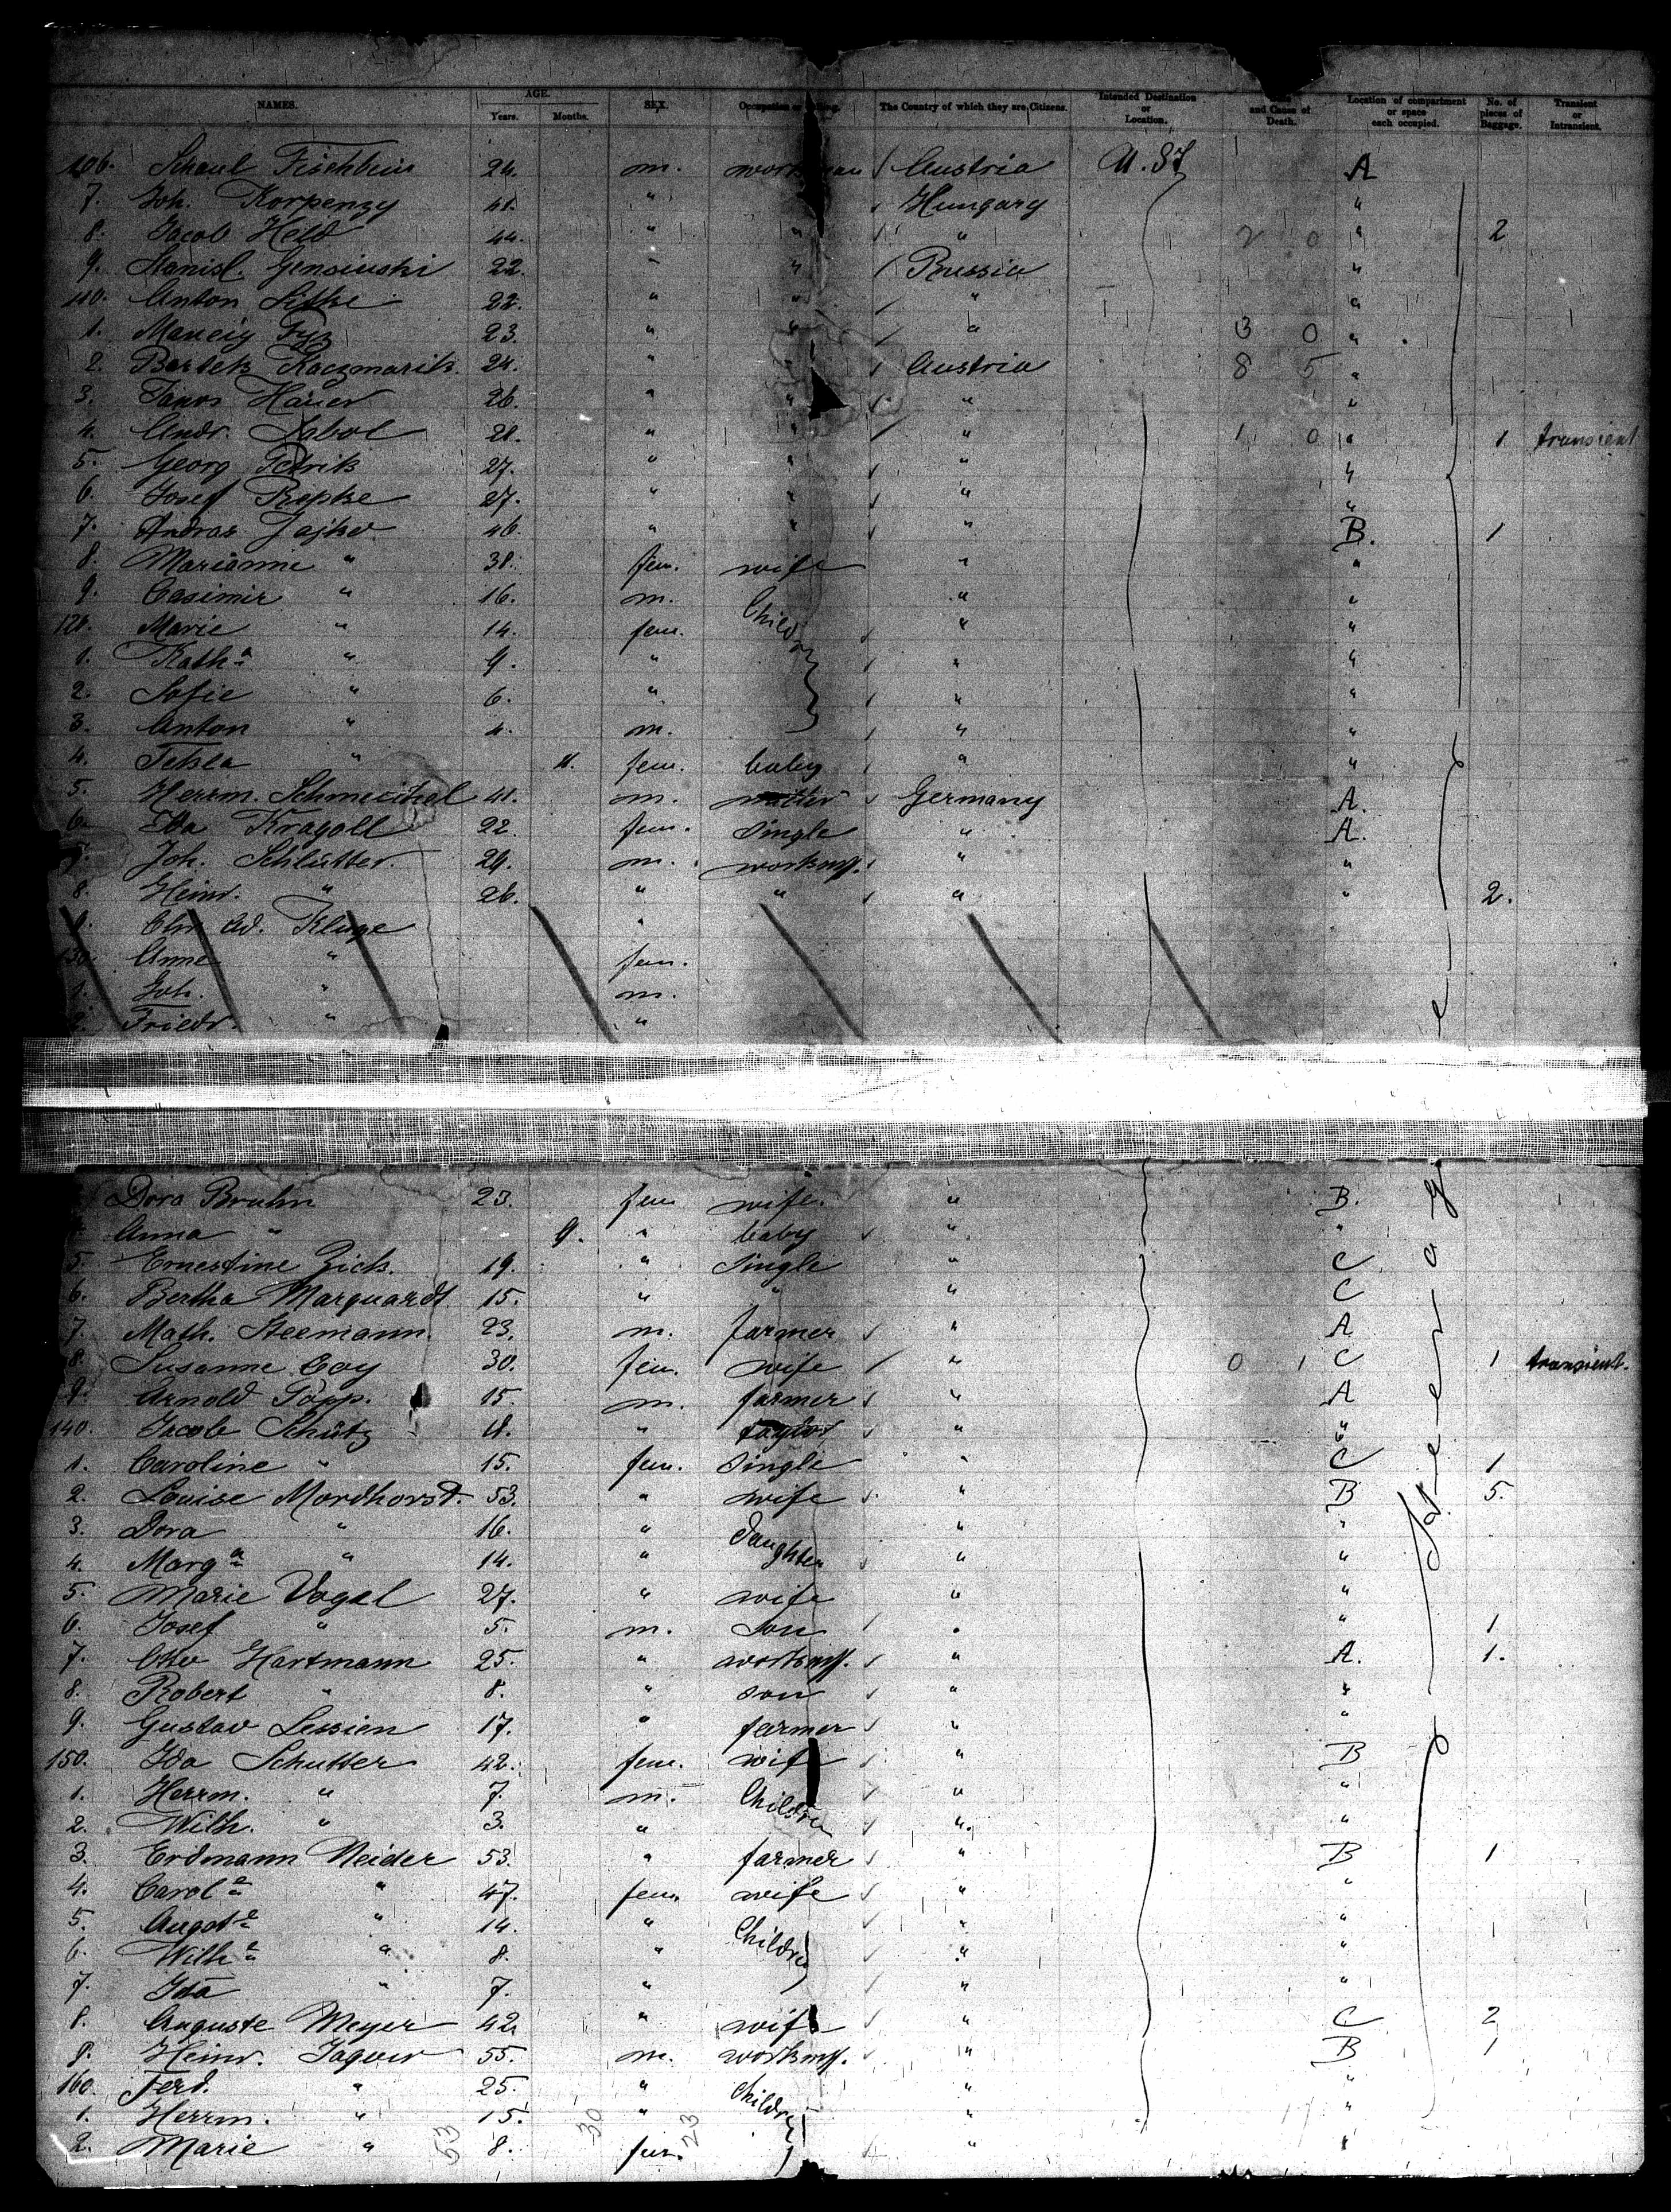 NAMES. AGE. Years. Months. SEX. Occupation or The Country of which they are Citizens. Intended Destination or Location. and Cause of Death. Location of compartment or space each occupied. No. of pieces of Baggage. Transient or Intransient.
106. Schaul Fischbein 24. m. workman Austria U. St A
7. Joh. Korpenzy 41. " Hungary "
8. Jacob Held 44. " " " 2 0 " 2
9. Stanisl. Gensinski 22. " " Russia "
110. Anton 22. " " " "
1. 23. " " " 3 0 "
2. Bartek Kaczmarik 24. " " Austria 8 5 "
3. Janos Hauer 26. " " " "
4. Andr. Sabol 28. " " " 1 0 " 1 transient
5. Georg Petrik 27. " " " "
6. Josef Repke 27. " " " "
7. Andras Jajko 46. " " " B. 1
8. Marianne " 38. fem. wife " "
9. Casimir " 16. m. Children " "
120. Marie " 14. fem. " "
1. Kath.a " 9. " " "
2. Sofie " 6. " " "
3. Anton " 4. m. " "
4. Tekla " 11. fem. baby " "
5. Herrm. 41. m. Germany A.
6. Ida Kragoll 22. fem. single " A.
7. Joh. Schlutter. 24. m. workm. " "
8. Heinr. " 26. " " " " 2.
9. Chr. Ad. Kluge "
130. Anne " fem.
1. Joh. " m.
2. Friedr. " "
Dora Bruhn 23. fem wife. " B.
Anna " 9. " baby " "
5. Ernestine Zick. 19. " single " C
6. Bertha Marquardt 15. " " " C
7. Math. Steemann. 23. m. farmer " A
8. Susanne Coy 30. fem. wife " 0 1 C 1 transient.
9. Arnold Popp. 15. m. farmer " A
140. Jacob Schütz 18. " taylor " "
1. Caroline " 15. fem. single " C 1
2. Louise Mordhorst. 53. " wife " B 5.
3. Dora " 16. " daughter " "
4. Marg.a " 14. " " "
5. Marie Vogel 27. " wife " "
6. Josef " 5. m. son " " 1
7. Otto Hartmann 25. " workm. " A. 1.
8. Robert " 8. " son " "
9. Gustav Lessien 17. " farmer " "
150. Ida Schutter 42. fem. wife " B
1. Herrm. " 7. m. Children " "
2. Wilh. " 3. " " "
3. Erdmann Neider 53. " farmer " B 1
4. Carol.e " 47. fem. wife " "
5. Augst.e " 14. " Children " "
6. Wilh.e " 8. " " "
7. Ida " 7. " " "
8. Auguste Meyer 42. " wife " C 2
9. Heinr. Jaguer 55. m. workm. " B 1
160. Ferd. " 25. " Children " "
1. Herrm. " 15. " " "
2. Marie " 8. fem. " "
Steerage
53 30 23